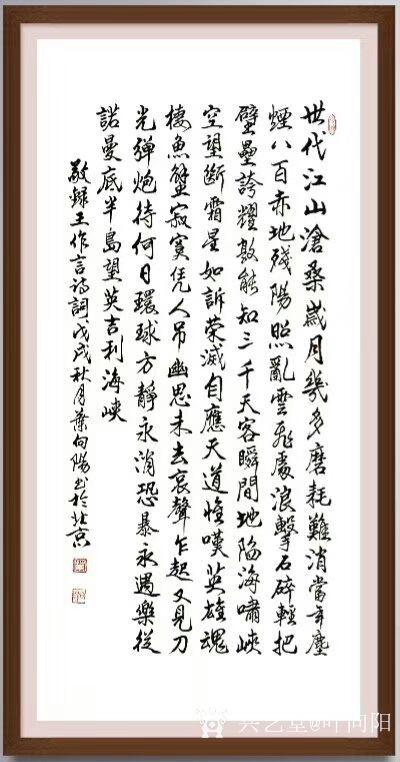 世代江山滄桑歲月幾多磨耗難消當年塵
煙八百赤地殘陽照亂雲飛處浪擊石碎輕把
壁壘誇耀敢能知三千天客瞬間地陷海嘯峽
空望斷霜星如訴榮滅自應天道惟嘆英雄魂
棲魚蟹寂寞凭人吊幽思未去哀聲乍起又見刀
光彈炮待何日環球方靜永消恐暴永遇樂從
諾曼底半島望英吉利海峽
敬錄王作言詩詞戊戌秋月葉向陽書於北京
兴艺堂@叶向阳